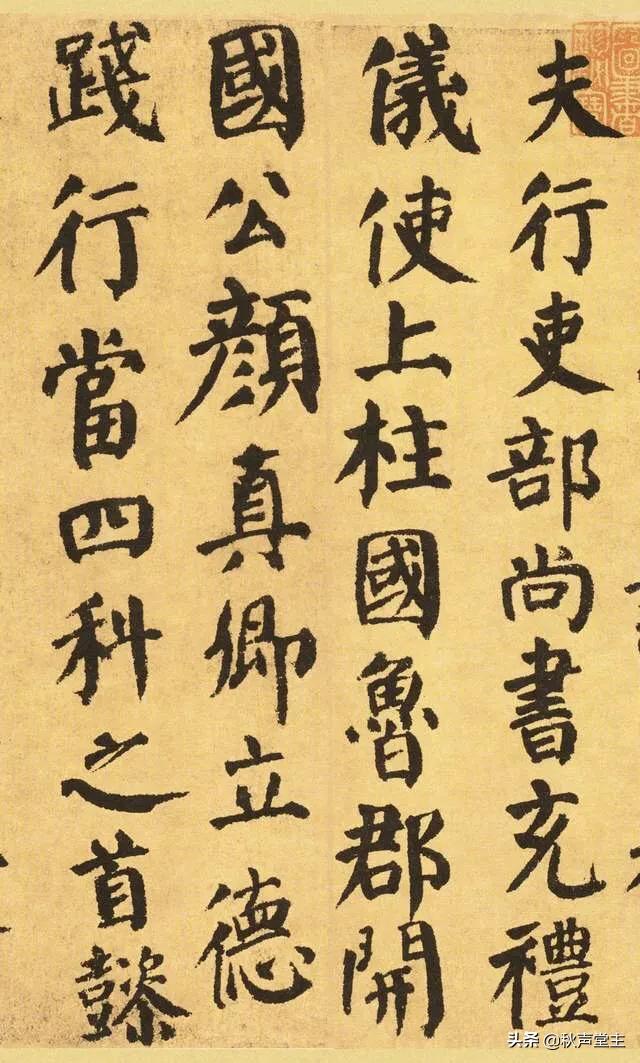 夫行吏部尚書充禮
儀使上柱國魯郡開
國公顏真卿立德
踐行當四科之首懿
头条 @秋声堂主